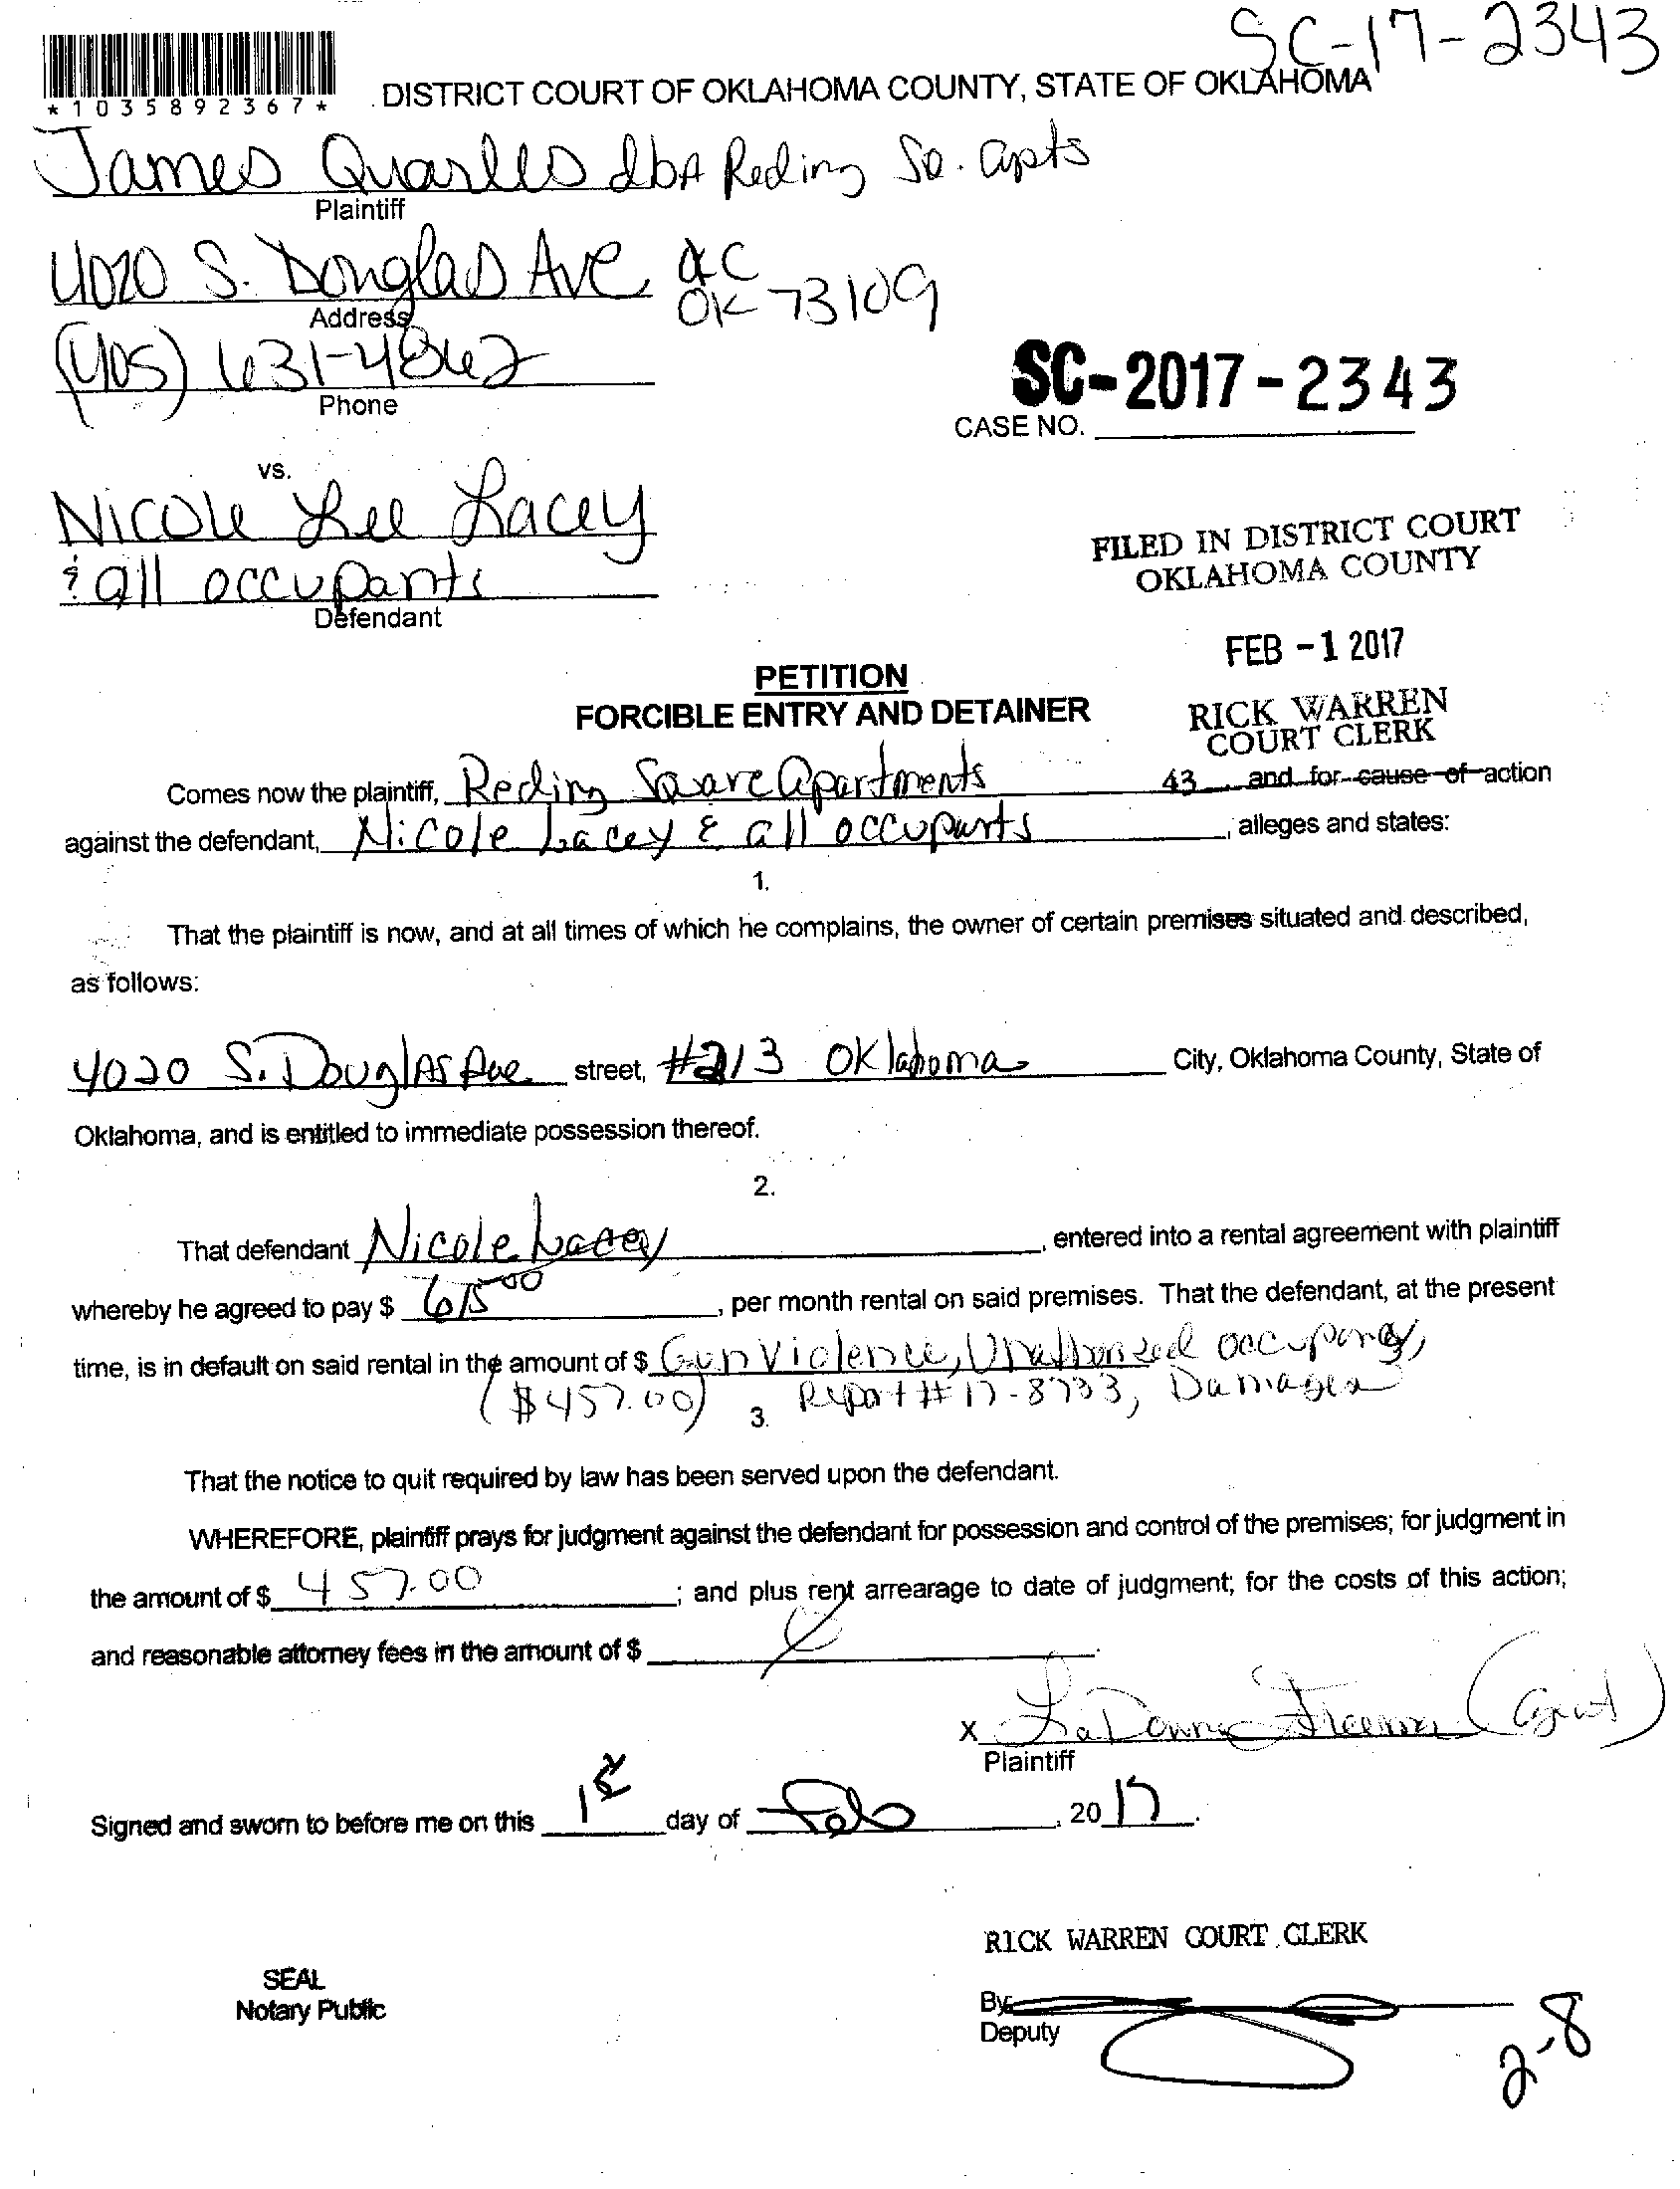 SC-17-2343
*1035892367*
DISTRICT COURT OF OKLAHOMA COUNTY, STATE OF OKLAHOMA
James Quarles dbA Reding Sq. Apts
Plaintiff
4020 S. Douglas Ave OC
OK 73109
Address
(405) 631-4862
Phone
SC-2017-2343
CASE NO.
vs.
Nicole Lee Lacey
& all occupants
Defendant
FILED IN DISTRICT COURT
OKLAHOMA COUNTY
FEB -1 2017
RICK WARREN
COURT CLERK
43
PETITION
FORCIBLE ENTRY AND DETAINER
Comes now the plaintiff, Reding Square Apartments, and for cause of action
against the defendant, Nicole Lacey & all occupants, alleges and states:
1.
That the plaintiff is now, and at all times of which he complains, the owner of certain premises situated and described,
as follows:
4020 S. Douglas Ave street, #213 Oklahoma City, Oklahoma County, State of
Oklahoma, and is entitled to immediate possession thereof.
2.
That defendant Nicole Lacey, entered into a rental agreement with plaintiff
whereby he agreed to pay $ 615.00, per month rental on said premises. That the defendant, at the present
time, is in default on said rental in the amount of $ Gun Violence, Unathorized occupancy,
($457.00) Report # 17-8733, Damages
3.
That the notice to quit required by law has been served upon the defendant.
WHEREFORE, plaintiff prays for judgment against the defendant for possession and control of the premises; for judgment in
the amount of $ 457.00; and plus rent arrearage to date of judgment; for the costs of this action;
and reasonable attorney fees in the amount of $
X LaDonna Freeman (Agent)
Plaintiff
Signed and sworn to before me on this 1st day of Feb, 2017.
RICK WARREN COURT CLERK
SEAL
Notary Public
By:
Deputy
2-8